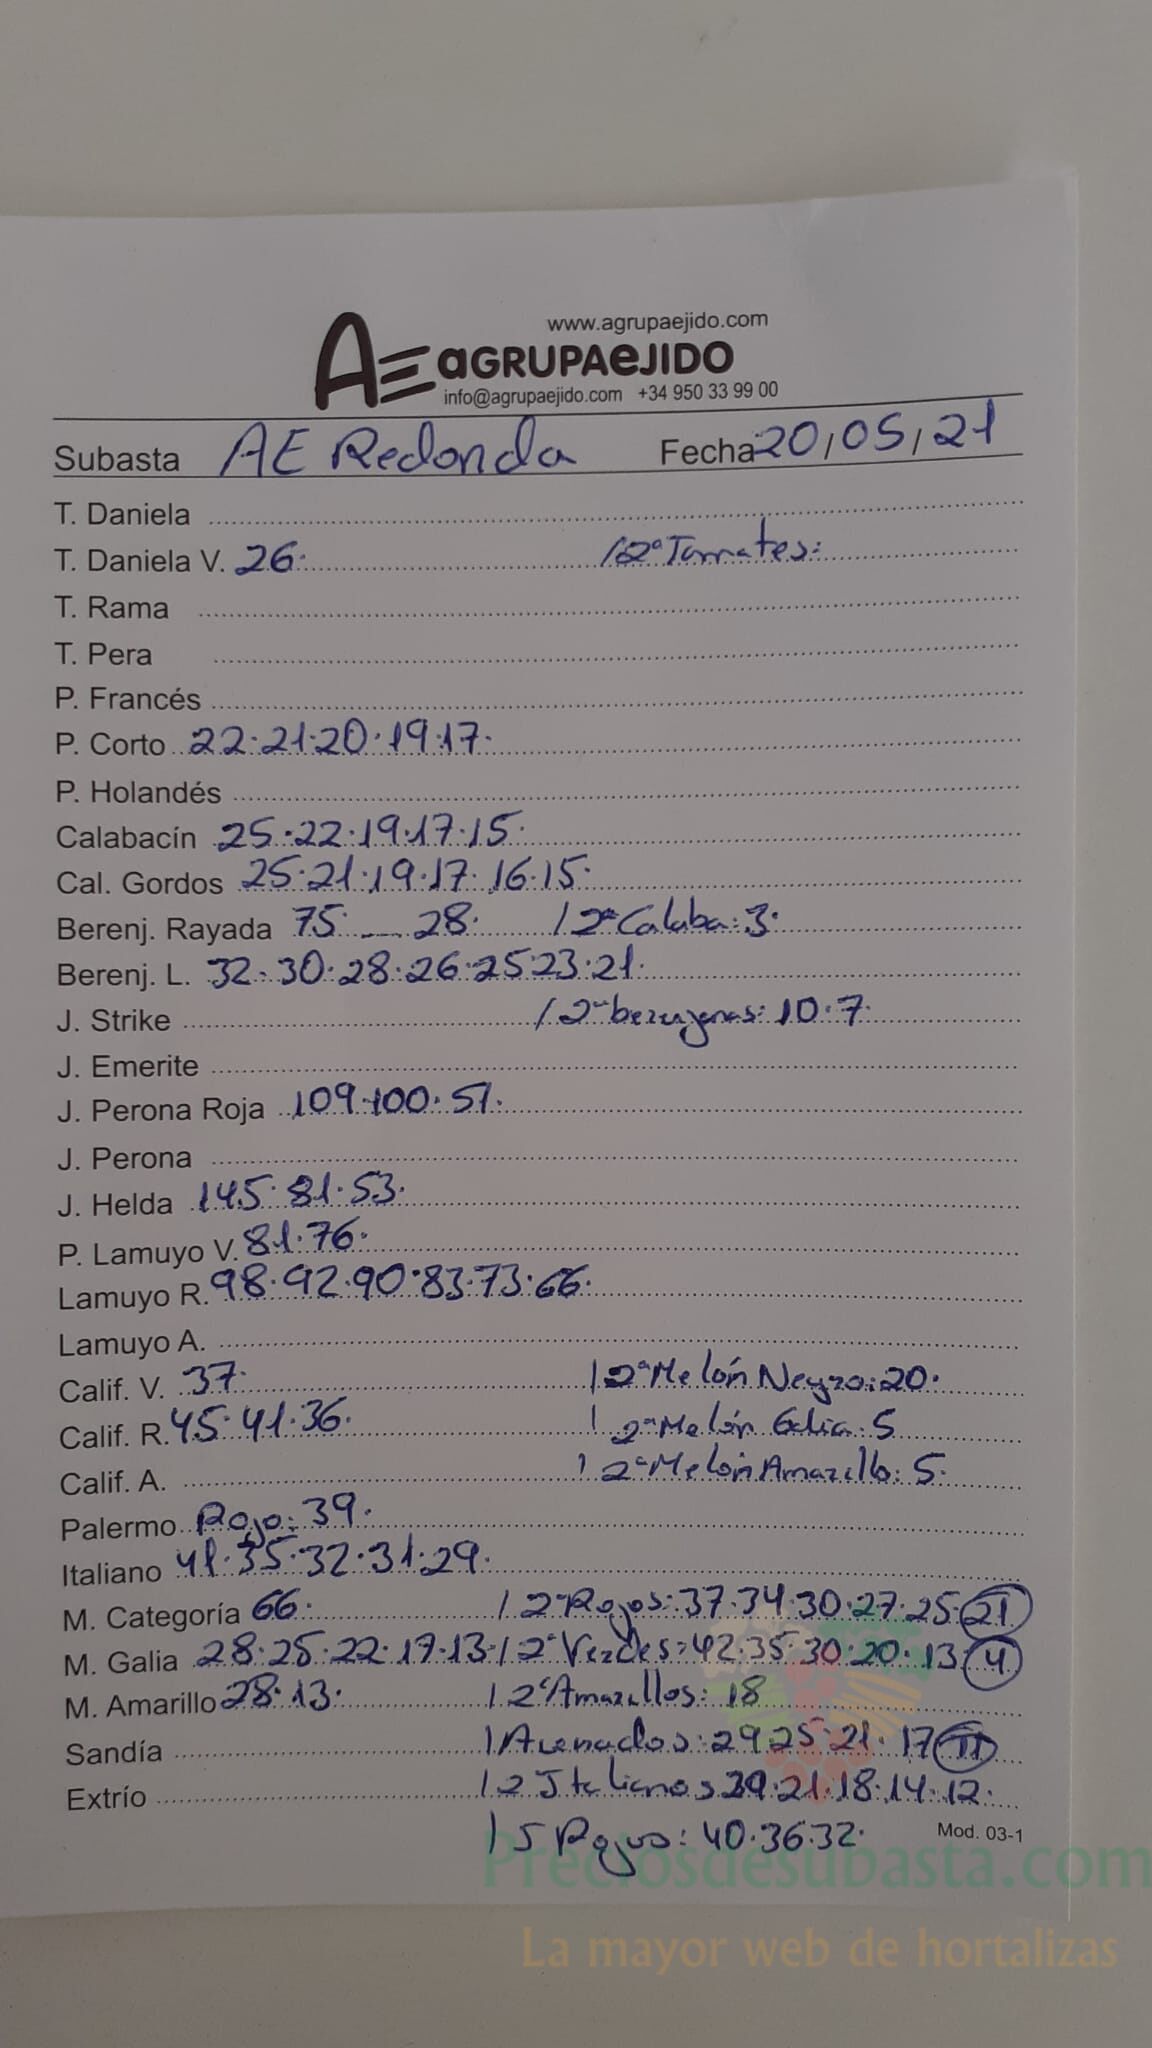 www.agrupaejido.com
AE aGRUPAeJIDO
info@agrupaejido.com +34 950 33 99 00
Subasta AE Redonda Fecha 20/05/21
T. Daniela
T. Daniela V. 26. / 2ª Tomates:
T. Rama
T. Pera
P. Francés
P. Corto 22.21.20.19.17.
P. Holandés
Calabacín 25.22.19.17.15.
Cal. Gordos 25.21.19.17.16.15.
Berenj. Rayada 75. __ 28. / 2ª Calaba: 3.
Berenj. L. 32.30.28.26.25.23.21.
J. Strike / 2ª berenjenas: 10.7.
J. Emerite
J. Perona Roja 109.100.51.
J. Perona
J. Helda 145.81.53.
P. Lamuyo V. 81.76.
Lamuyo R. 98.92.90.83.73.66.
Lamuyo A.
Calif. V. 37. / 2ª Melón Negro: 20.
Calif. R. 45.41.36. / 2ª Melón Galia: 5
Calif. A. / 2ª Melón Amarillo: 5.
Palermo Rojo: 39.
Italiano 41.35.32.31.29.
M. Categoría 66. / 2ª Rojos: 37.34.30.27.25.21
M. Galia 28.25.22.17.13. / 2ª Verdes: 42.35.30.20.13.4
M. Amarillo 28.13. / 2ª Amarillos: 18
Sandía / Asenados: 29.25.21.17.11
Extrío / 2 Italianos 29.21.18.14.12.
/ 5 Rojos: 40.36.32.
Mod. 03-1
Preciosdesubasta.com
La mayor web de hortalizas